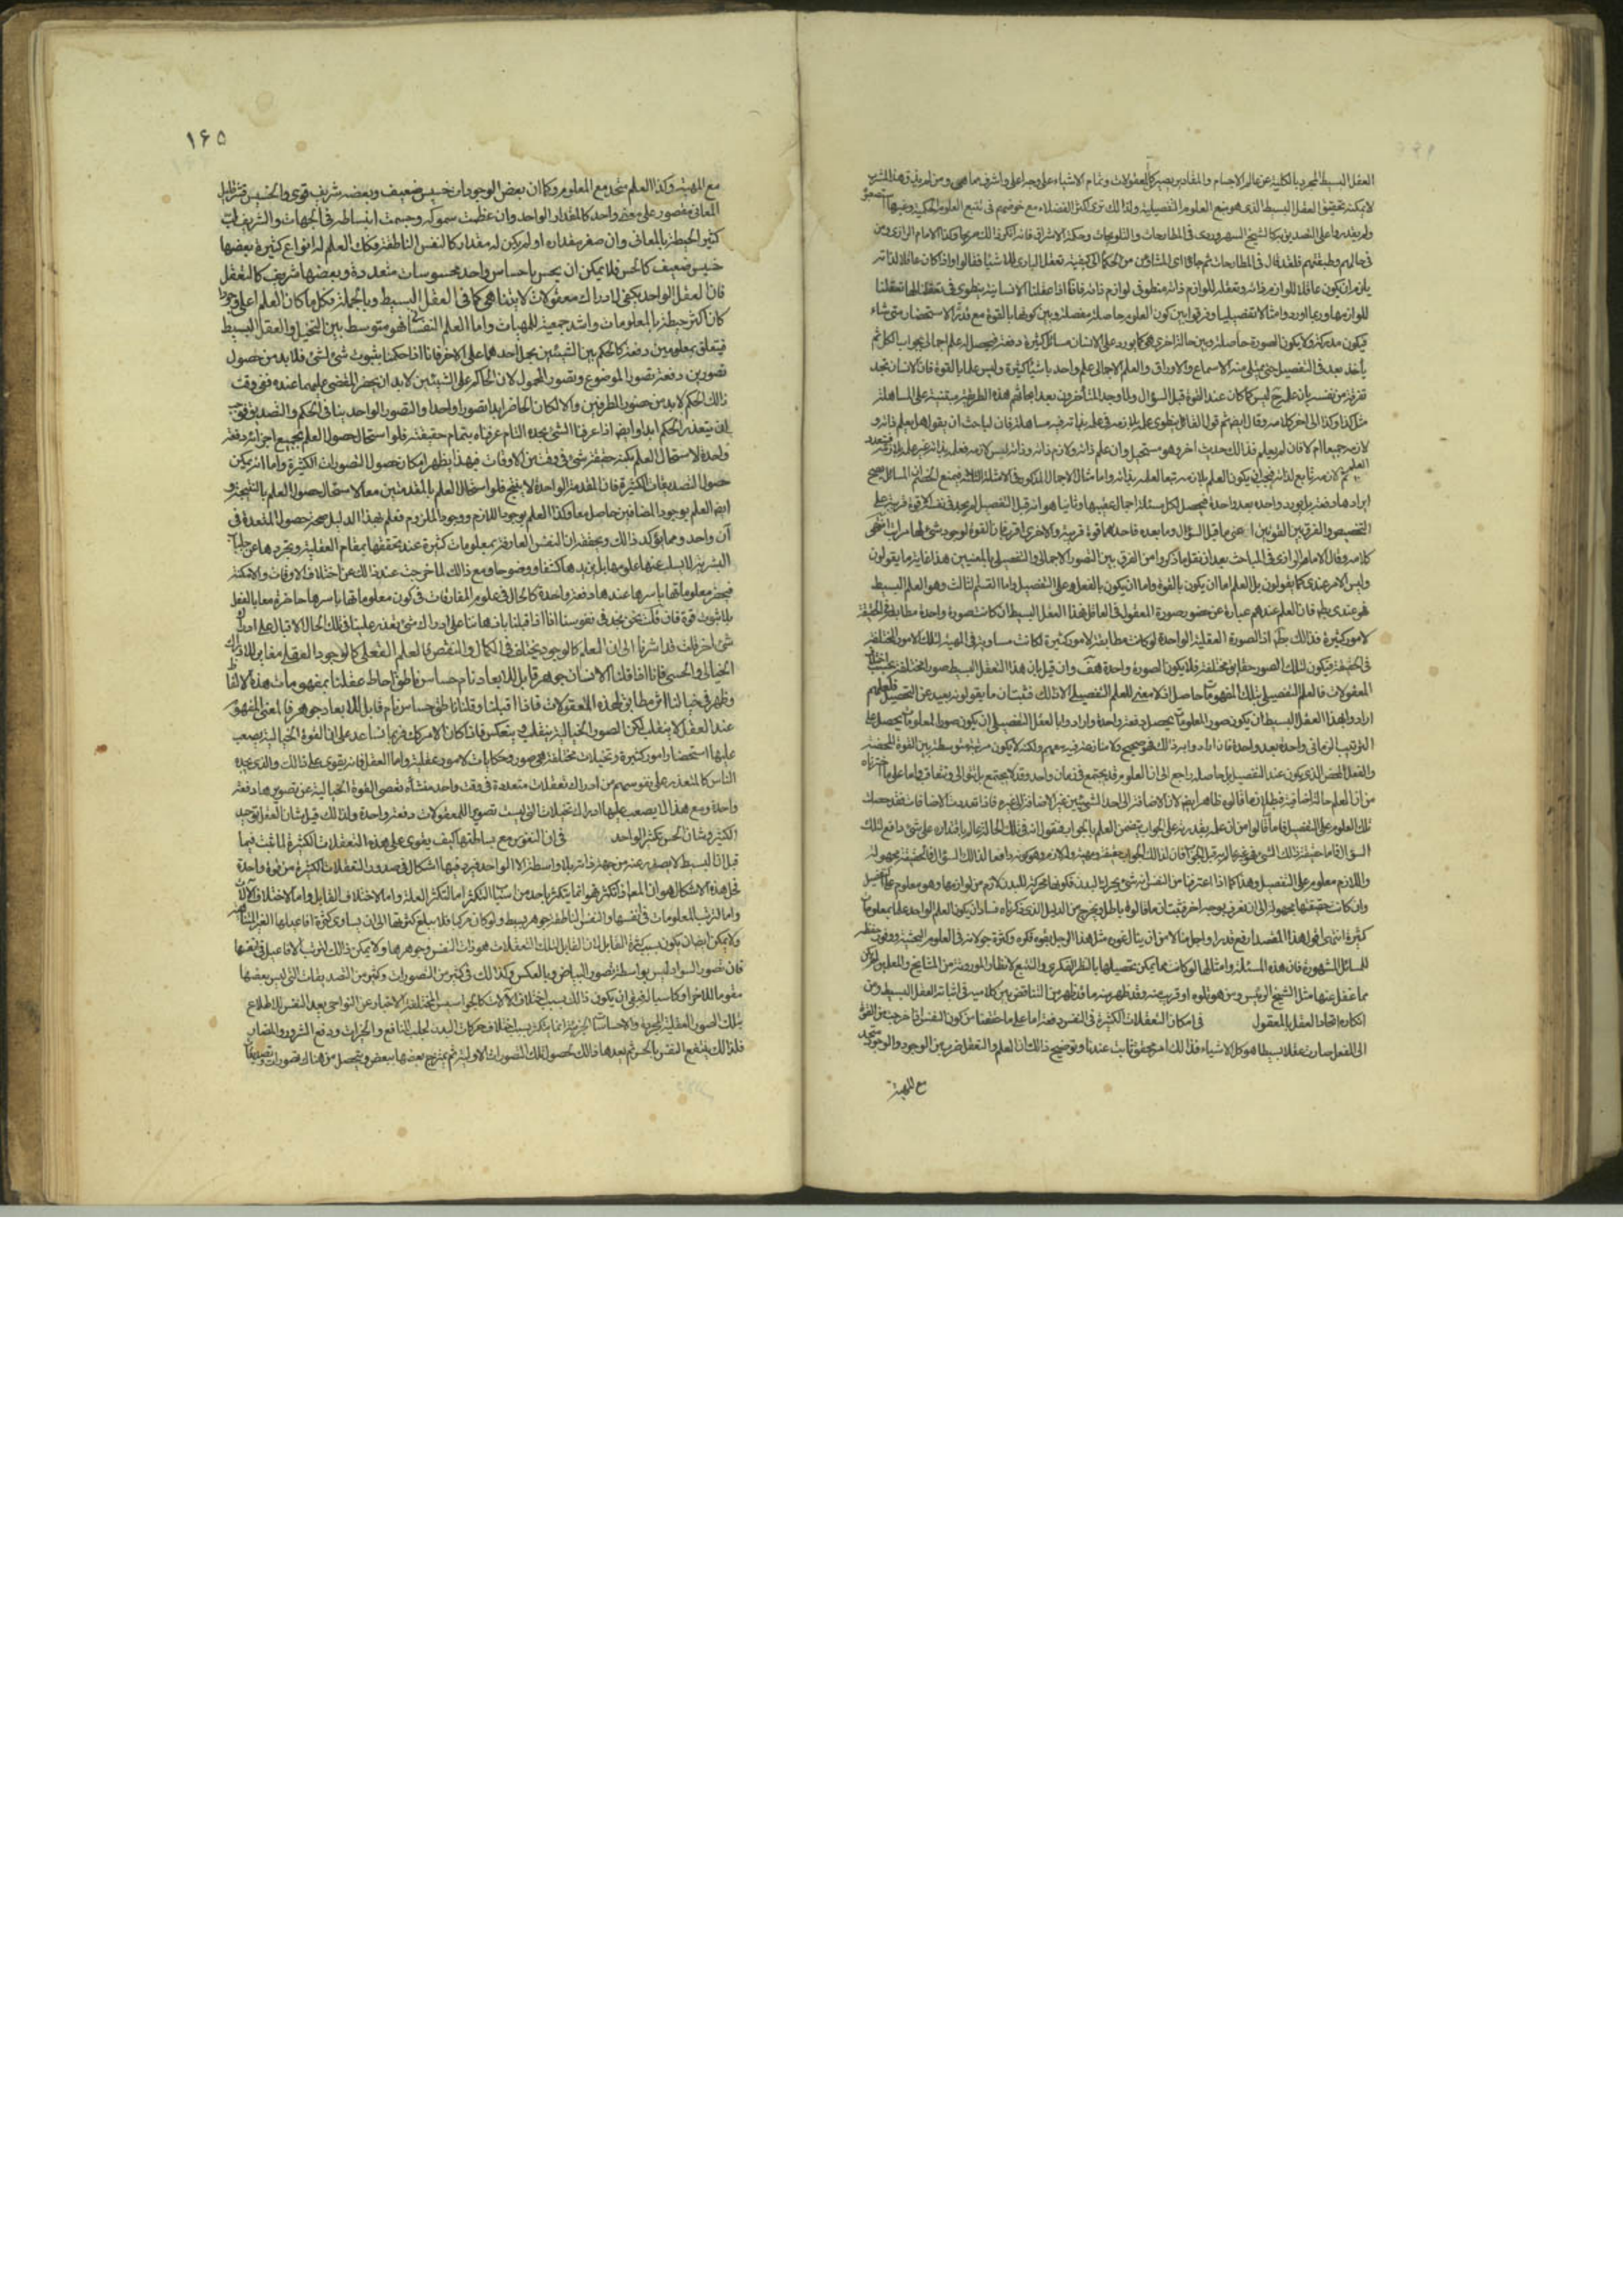 العقل البسيط المجرد بالكلية عن عالم الاجسام والمقادير يصير كل المعقولات وتمام الاشياء على وجه اعلى واشرف مما هى ومن لم يذق هذا المشرب
لا يمكنه تحقيق العقل البسيط الذى هو منبع العلوم التفصيلية ولذلك ترى اكثر الفضلاء مع خوضهم فى تتبع العلوم الحكمية وغيرها استصعبوه
ولم يقدروا على التصديق به كالشيخ السهروردى فى المطارحات والتلويحات وحكمة الاشراق فانه انكر ذلك صريحا وكذا الامام الرازى ومن
فى حالهم وطبقتهم فلقد قال فى المطارحات ثم جاؤا اى المشاؤن من الحكماء الى كيفية تعقل البارى للاشياء فقالوا واذا كان عاقلا لذاته
يلزم ان يكون عاقلا للوازم ذاته وتعقله للوازم ذاته منطو فى لوازم ذاته فانا اذا عقلنا الانسانية ينطوى فى تعقلنا لها تعقلنا
للوازمها وربما اوردوا مثالا تفصيليا وفرقوا بين كون العلوم حاصلة مفصلة وبين كونها بالقوة مع قدرة الاستحضار متى شاء
فيكون ملكة ولا يكون الصورة حاصلة وبين حالة اخرى هى كما يورد على الانسان مسائل كثيرة دفعة فيحصل له علم اجمالى بجواب الكل ثم
يأخذ بعده فى التفصيل حتى يمتلى منه الاسماع والاوراق والعلم الاجمالى علم واحد باشياء كثيرة وليس علما بالقوة فان الانسان يجد
تفرقة من نفسه بان علمه ح ليس كما كان عند القوة قبل السؤال ولما وجد المتأخرون بعد ابحاثهم هذه الطريقة مبتنية على المساهلة
مثل كذا وكذا الى آخر كلامه وقال ايضا ثم قول القائل ينطوى علمه بلازمه فى علمه بذاته فيه مساهلة فان لباحث ان يقول هل يعلم ذاته و
لازمه جميعا ام لا فان لم يعلم فذلك حديث آخر وهو مستحيل وان علم ذاته ولازم ذاته وذاته ليس لازمه فعلمه بذاته غير علمه بلازمه فتعدد
العلم ثم لازمه تابع لذاته فيجب ان يكون العلم بلازمه تبعا لعلمه بذاته واما مثال الاجمال المذكور فى الامثلة الثلثة فيمنع الخصم ان المسائل يصح
ايرادها دفعة بل يورد واحدة بعد واحدة فيحصل لكل مسئلة اجمال عقيبها وثانيا هو انه قبل التفصيل انما يجد فى نفسه الا قوة قريبة على
التخصيص والفرق بين القوتين اعنى ما قبل السؤال وما بعده فاحدهما قوة قريبة والاخرى اقرب فان القوة لوجود شئ لها مراتب انتهى
كلامه وقال الامام الرازى فى المباحث بعد ان نقل ما ذكروا من الفرق بين التصور الاجمالى والتفصيلى بالمعنيين هذا غاية ما يقولون
وليس الامر عندى كما يقولون بل العلم اما ان يكون بالقوة واما ان يكون بالفعل وعلى التفصيل واما القسم الثالث وهو العلم البسيط
فهو عندى بط فان العلم عندهم عبارة عن حضور صورة المعقول فى العاقل فهذا العقل البسيط ان كانت صورة واحدة مطابقة فى الحقيقة
لامور كثيرة فذلك بط اذ الصورة العقلية الواحدة لو كانت مطابقة لامور كثيرة لكانت مساوية فى المهية لتلك الامور المختلفة
فى الحقيقة فيكون لتلك الصور حقايق مختلفة فلا يكون الصورة واحدة هف وان قيل بان هذا التعقل البسيط صور مختلفة بحسب اختلاف
المعقولات فالعلم التفصيلى بتلك المفهومات حاصل اذ لا معنى للعلم التفصيلى الا ذلك فثبت ان ما يقولونه بعيد عن التحصيل فلعلهم
ارادوا بهذا العقل البسيط ان يكون صور المعلومات يحصل دفعة واحدة وارادوا بالعقل التفصيلى ان يكون صور المعلومات يحصل على
الترتيب الزمانى واحدة بعد واحدة فان ارادوا به ذلك فهو صحيح ولا منازعة فيه معهم ولكنه لا يكون مرتبة متوسطة بين القوة المحضة
والفعل المحض الذى يكون عند التفصيل بل حاصله راجع الى ان العلوم قد يجتمع فى زمان واحد وقد لا يجتمع بل يتوالى ويتعاقب واما على ما اخترناه
من ان العلم حالة اضافية فبطلان ما قالوه ظاهر ايضا لان الاضافة الى احد الشيئين غير الاضافة الى غيره فاذا تعددت الاضافات فقد حصلت
تلك العلوم على التفصيل فاما ما قالوا من ان علمه بقدرته على الجواب يتضمن العلم بالجواب فنقول انه فى تلك الحالة عالم باقتداره على شئ دافع لتلك
السؤال فاما حقيقة ذلك الشئ فهو غير عالم به قبل الجواب فان لذلك الجواب حقيقة ومهية وله لازم وهو كونه دافعا لذلك السؤال فالحقيقة مجهولة
واللازم معلوم على التفصيل وهذا كما اذا عرفنا من النفس انه شئ يحرك البدن فكونها محركة للبدن لازم من لوازمها وهو معلوم على التفصيل
وان كانت حقيقتها مجهولة الى ان تعرف بوجه آخر فثبت ان ما قالوه باطل ويخرج من الدليل الذى ذكرناه فساد ان يكون العلم الواحد علما بمعلومات
كثيرة انتهى اقول هذا المقصد ارفع قدرا واجل منالا من ان يناله بقوه مثل هذا الرجل بقوة فكره وكثرة جولانه فى العلوم البحثية ووفور حفظه
للمسائل المشهورة فان هذه المسئلة وامثالها لو كانت مما يمكن تحصيلها بالنظر الفكرى والتتبع لانظار الموروثة من المشايخ والمعلمين لم يكن
مما غفل عنها مثل الشيخ الرئيس ومن هو تلوه او قريب منه وقد ظهر منه ما قد ظهر من التناقض بين كلاميه فى اثباته العقل البسيط ومن
انكاره اتحاد العقل بالمعقول فى امكان التعقلات الكثيرة فى النفس دفعة اما على ما حققنا من كون النفس اذا خرجت من القوة
الى الفعل صارت عقلا بسيطا هو كل الاشياء فذلك امر محقق ثابت عندنا وتوضيح ذلك ان العلم والتعقل ضرب من الوجود والوجود متحد
مع المهية
١۶۵
مع المهية وكذا العلم متحد مع المعلوم وكما ان بعض الوجودات خسيس ضعيف وبعضه شريف قوى والخسيس قشر قليل
المعانى مقصور على معنى واحد كالمقدار الواحد وان عظمت سموكه وجسمت انبساطه فى الجهات والشريف لب
كثير الحيطة بالمعانى وان صغر مقداره او لم يكن له مقدار كالنفس الناطقة فكذلك العلم له انواع كثيرة بعضها
خسيس ضعيف كالحس فلا يمكن ان يحس باحساس واحد محسوسات متعددة وبعضها شريف كالتعقل
فان العقل الواحد يكفى لادراك معقولات لا يتناهى كما فى العقل البسيط وبالجملة فكل ما كان العلم اعلى وجودا
كان اكثر حيطة بالمعلومات واشد جمعية للمهيات واما العلم النفسانى فهو متوسط بين التخيل والعقل البسيط
فيتعلق بمعلومين دفعة كالحكم بين الشيئين بحمل احدهما على الآخر فانا اذا حكمنا بثبوت شئ لشئ فلا بد من حصول
تصورين دفعة تصور الموضوع وتصور المحمول لان الحاكم على الشيئين لا بد ان يحضره المقضى عليهما عنده ففى وقت
ذلك الحكم لا بد من حضور الطرفين والا لكان الحاضر ابدا تصورا واحدا والتصور الواحد ينافى الحكم والتصديق فوجب
ان يتعذر الحكم ابدا وايضا اذا عرفنا الشئ بحده التام عرفناه بتمام حقيقته فلو استحال حصول العلم بجميع اجزائه دفعة
واحدة لاستحال العلم بكنه حقيقة شئ فى وقت من الاوقات فبهذا يظهر امكان حصول التصورات الكثيرة واما انه يمكن
حصول التصديقات الكثيرة فان المقدمة الواحدة لا ينتج فلو استحال العلم بالمقدمتين معا لاستحال حصول العلم بالنتيجة و
ايضا العلم بوجود المضافين حاصل معا وكذا العلم بوجود اللازم ووجود الملزوم فعلم بهذا الدليل صحة حصول المتعددة فى
آن واحد ومما يؤكد ذلك ويحققه ان النفس العارفة بمعلومات كثيرة عند تحققها بمقام العقلية وتجردها عن جلباب
البشرية لا يسلب عنها علومها بل يزيدها كشفا ووضوحا ومع ذلك لما خرجت عند ذلك عن اختلاف الاوقات والامكنة
فيحضر معلوماتها باسرها عندها دفعة واحدة كالحال فى علوم المفارقات فى كون معلوماتها باسرها حاضرة معا بالفعل
بلا شوب قوة فان قلت نحن نجد فى نفوسنا انا اذا اقبلنا باذهاننا على ادراك شئ تعذر علينا فى تلك الحال الاقبال على ادراك
شئ آخر قلت قد اشرنا الى ان العلم كالوجود يختلف فى الكمال والنقص فالعلم العقلى كالوجود العقلى مغاير للادراك
الخيالى والحسى فانا اذا قلنا الانسان جوهر قابل للابعاد نام حساس ناطق احاط عقلنا بمفهومات هذه الالفاظ
وظهر فى خيالنا اثر مطابق لهذه المعقولات فاذا قلبنا وقلنا ناطق حساس نام قابل للابعاد جوهر فالمعنى المفهوم
عند العقل لا ينقلب لكن الصور الخيالية ينقلب وينعكس فاذا كان الامر كك فربما نساعد على ان القوة الخيالية يصعب
عليها استحضار امور كثيرة وتخيلات مختلفة هى صور وحكايات لامور عقلية واما العقل فانه يقوى على ذلك والذى يجده
الناس كالمتعذر على نفوسهم من ادراك تعقلات متعددة فى وقت واحد منشأه تعصى القوة الخيالية عن تصويرها دفعة
واحدة ومع هذا لا يصعب عليها ادراك تخيلات التى ليست تصوير المعقولات دفعة واحدة ولذلك قيل شان العقل توحيد
الكثير وشان الحس تكثير الواحد فى ان النفوس مع بساطتها كيف يقوى على هذه التعقلات الكثيرة لما ثبت فيما
قبل ان البسيط لا يصدر عنه من جهة ذاته بلا واسطة الا الواحد فيرد فيها اشكال فى صدور التعقلات الكثيرة من قوة واحدة
فحل هذه الاشكال هو ان المعلول تكثره انما يتكثر باحد من اسباب التكثر اما لتكثر العلة واما لاختلاف القابل واما لاختلاف الآلات
واما لترتب المعلومات فى انفسها والنفس الناطقة جوهر بسيط ولو كان مركبا فلا يبلغ كثرتها الى ان يساوى كثرة افاعيلها الغير المتناهية
ولا يمكن ايضا ان يكون بسبب كثرة القابل لان القابل لتلك التعقلات هو ذات النفس وجوهرها ولا يمكن ذلك لترتب الافاعيل فى انفسها
فان تصور السواد ليس بواسطة تصور البياض وبالعكس وكذلك فى كثير من التصورات وكثير من التصديقات التى ليس بعضها
مقوما للآخر او كاسبا له فبقى ان يكون ذلك بسبب اختلاف الآلات كالحواس المختلفة الاخبار عن النواحى يعد النفس للاطلاع
بتلك الصور العقلية المجردة والاحساسات الجزئية انما يتكثر بسبب اختلاف حركات البدن لجلب المنافع والخيرات ودفع الشرور والمضار
فلذلك ينتفع النفس بالحس ثم يعدها ذلك لحصول تلك التصورات الاولية ثم يمتزج بعضها ببعض ويتحصل من هناك تصورات وتصديقات